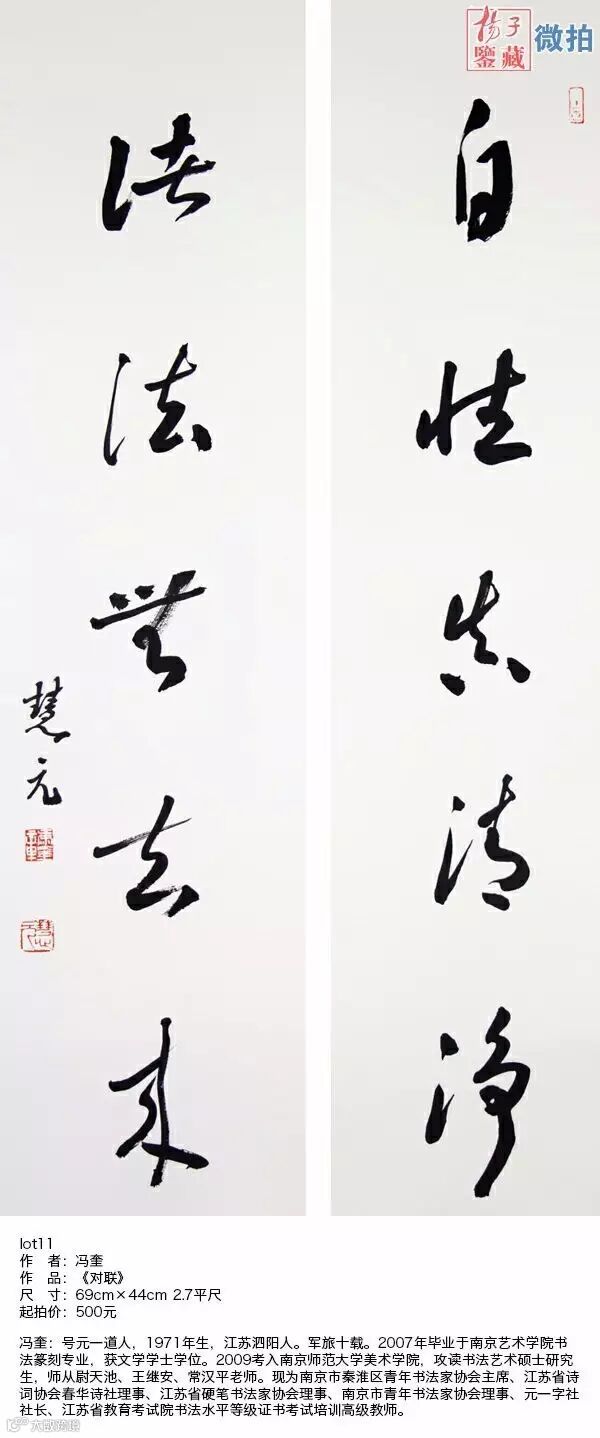 楊子
鑒藏
微拍
自性真清净
诸法無去来
慧元
lot11
作 者：冯奎
作 品：《对联》
尺 寸：69cm×44cm 2.7平尺
起拍价：500元
冯奎：号元一道人，1971年生，江苏泗阳人。军旅十载。2007年毕业于南京艺术学院书
法篆刻专业，获文学学士学位。2009考入南京师范大学美术学院，攻读书法艺术硕士研究
生，师从尉天池、王继安、常汉平老师。现为南京市秦淮区青年书法家协会主席、江苏省诗
词协会春华诗社理事、江苏省硬笔书法家协会理事、南京市青年书法家协会理事、元一字社
社长、江苏省教育考试院书法水平等级证书考试培训高级教师。